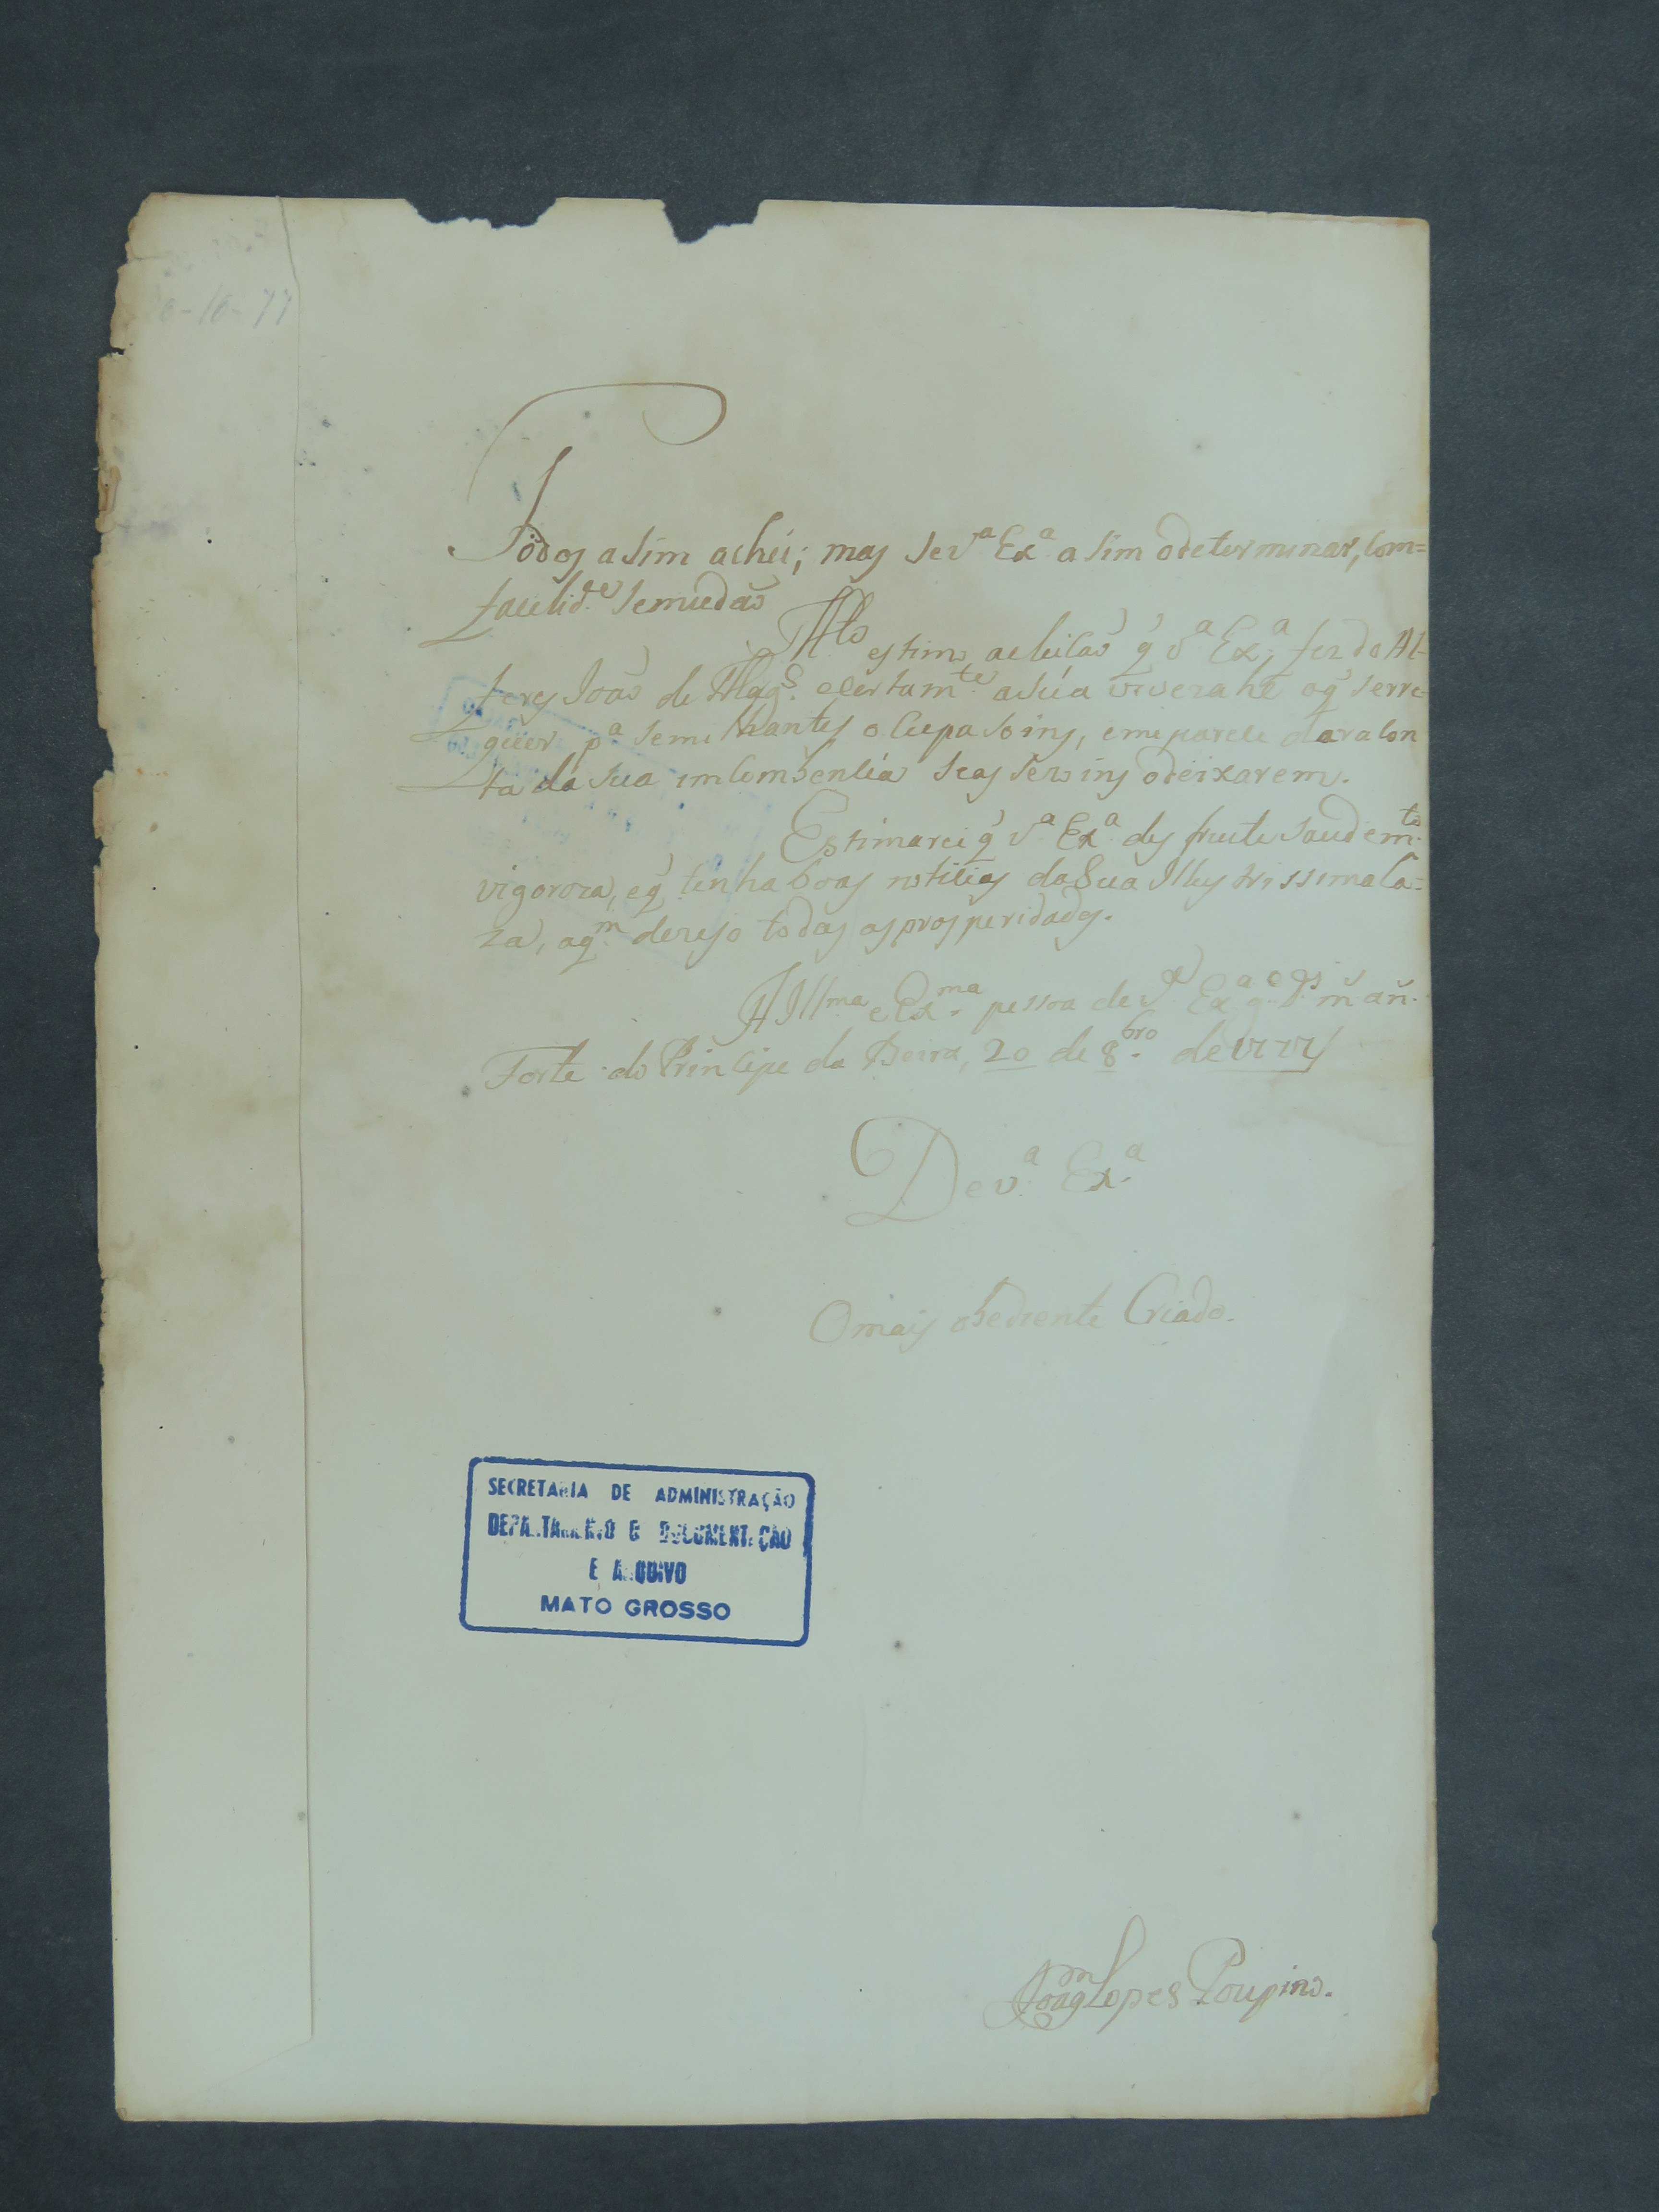 6-10-77
Todos asim achei; mas se v.ª Ex.ª asim o determinar, com=
facelid.e se mudaõ
Alo estimo, a eleiçaõ q̃ v.ª Ex.ª, fez do Al-
feres Joaõ de Mag.s e certam.te a súa viveza hé o q̃ se rre-
quer p.ª semilhantes ocupasoins, e me parece dara con
ta da sua incombencia se as sezoins o deixarem.
Estimarei q̃ v.ª Ex.ª desfrute saude m.to
vigoroza, e q̃ tenha boas noticias da Sua Illustrissima Ca=
za, a q.m dezejo todas as prosperidades.
A Ill.ma e Ex.ma pessoa de v.ª Ex.ª g.e D.s m.s an.s
Forte do Principe da Beira, 20 de 8.bro de 1777
De v.ª Ex.ª
O mais obediente Criado.
SECRETARIA DE ADMINISTRAÇÃO
DEPARTAMENTO DE DOCUMENTAÇÃO
E ARQUIVO
MATO GROSSO
Joaq.m Lopes Poupino.